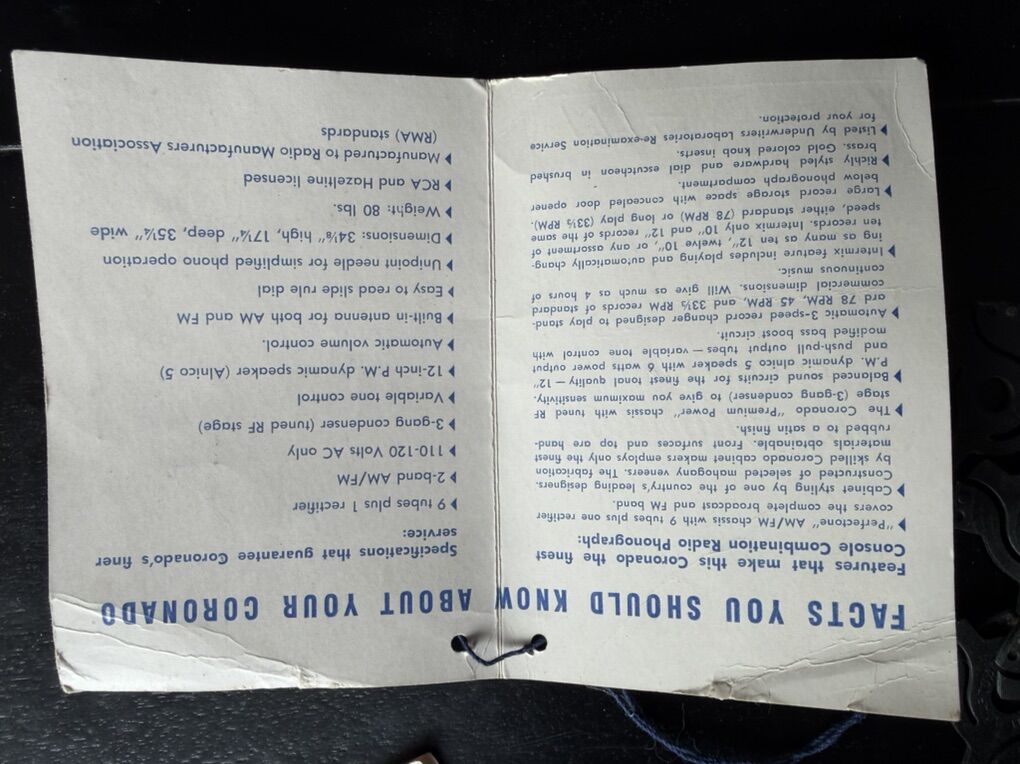 FACTS YOU SHOULD KNOW ABOUT YOUR CORONADO
Features that make this Coronado the finest
Console Combination Radio Phonograph:
"Perfectone" AM/FM chassis with 9 tubes plus one rectifier
covers the complete broadcast and FM band.
Cabinet styling by one of the country's leading designers.
Constructed of selected mahogany veneers. The fabrication
by skilled Coronado cabinet makers employs only the finest
materials obtainable. Front surfaces and top are hand-
rubbed to a satin finish.
The Coronado "Premium Power" chassis with tuned RF
stage (3-gang condenser) to give you maximum sensitivity.
Balanced sound circuits for the finest tonal quality — 12"
P.M. dynamic alnico 5 speaker with 6 watts power output
and push-pull output tubes — variable tone control with
modified bass boost circuit.
Automatic 3-speed record changer designed to play stand-
ard 78 RPM, 45 RPM, and 33⅓ RPM records of standard
commercial dimensions. Will give as much as 4 hours of
continuous music.
Intermix feature includes playing and automatically chang-
ing as many as ten 12", twelve 10", or any assortment of
ten records. Intermix only 10" and 12" records of the same
speed, either standard (78 RPM) or long play (33⅓ RPM).
Large record storage space with concealed door opener
below phonograph compartment.
Richly styled hardware and dial escutcheon in brushed
brass. Gold colored knob inserts.
Listed by Underwriters Laboratories Re-examination Service
for your protection.
Specifications that guarantee Coronado's finer
service:
9 tubes plus 1 rectifier
2-band AM/FM
110-120 Volts AC only
3-gang condenser (tuned RF stage)
Variable tone control
12-inch P.M. dynamic speaker (Alnico 5)
Automatic volume control.
Built-in antenna for both AM and FM
Easy to read slide rule dial
Unipoint needle for simplified phono operation
Dimensions: 34⅛" high, 17¼" deep, 35¼" wide
Weight: 80 lbs.
RCA and Hazeltine licensed
Manufactured to Radio Manufacturers Association
(RMA) standards